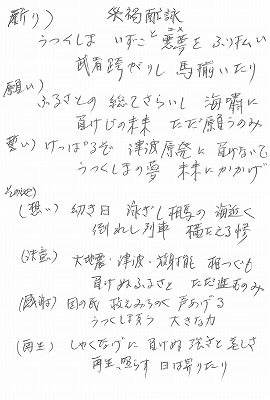 祈り) 災禍献詠
うつくしま いずこと悪夢を ふり払い
武者跨がりし 馬揃いたり
願い)
ふるさとの 総てさらいし 海嘯に
負けじの未来 ただ願うのみ
誓い) けっぱるぞ 津波原発に 負けないで
うつくしまの夢 未来にかかげ
その他)
(想い) 幼き日 泳ぎし相馬の 海近く
倒れし列車 横たえる惨
(決意) 大地震・津波・放射能 相つぐも
負けぬふるさと ただ進むのみ
国の民 救えみちのく 声あげる
うつくしま 大きな力
(再生) しゃくなげに 負けぬ強さと 美しさ
再生照らす 日は昇りたり